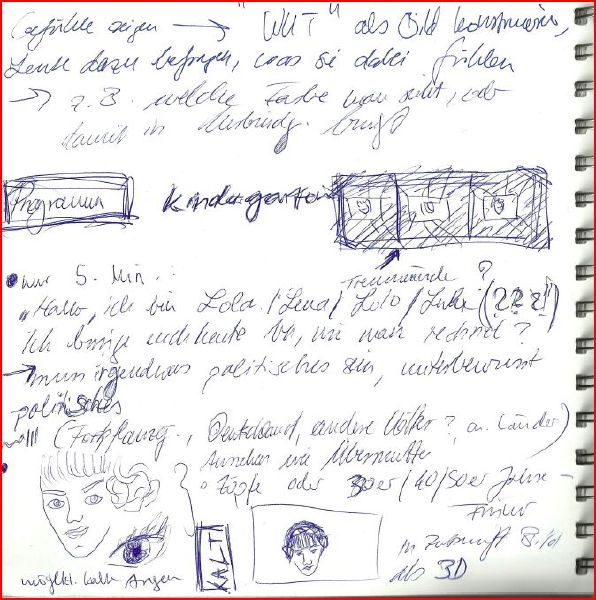 Gefühle zeigen → "WUT" als Bild konstruieren,
Leute dazu befragen, was sie dabei fühlen
→ z.B. welche Farbe man sieht, od.
damit in Verbindg. bringt
Programm Kindergarten
Trennwände ?
• nur 5. Min.:
"Hallo, ich bin Lola / Lena / Lolo / Luki (???")
Ich bringe euch heute bei, wie man rechnet?
→ muss irgendwas politisches sein, unterbewusst
politisches
(Fortpflanzg., Deutschland, andere Völker?, an. Länder)
Aussehen wie Übermutter
• Zöpfe oder 30er/40/50er Jahre-
Frisur
KALT!
möglst. kalte Augen
in Zukunft Bild
als 3D